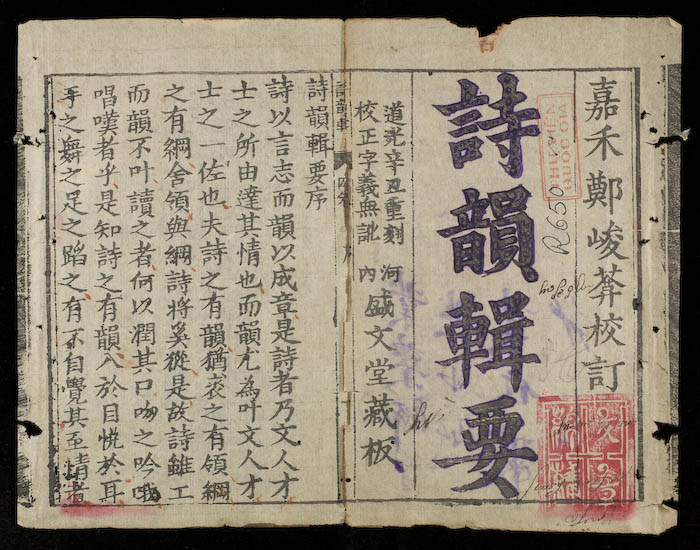 嘉禾鄭峻葊校訂
詩韻輯要
道光辛丑重刻
校正字義無訛
河內
盛文堂藏板
THƯ VIỆN
QUỐC GIA
R650
詩韻輯
序
詩韻輯要序
詩以言志而韻以成章是詩者乃文人才
士之所由達其情也而韻尤為叶文人才
士之一佐也夫詩之有韻猶裘之有領綱
之有綱舍領與綱詩將奚從是故詩雖工
而韻不叶讀之者何以潤其口吻之吟哦
唱嘆者乎是知詩之有韻入於目悅於耳
手之舞之足之蹈之有不自覺其至情者